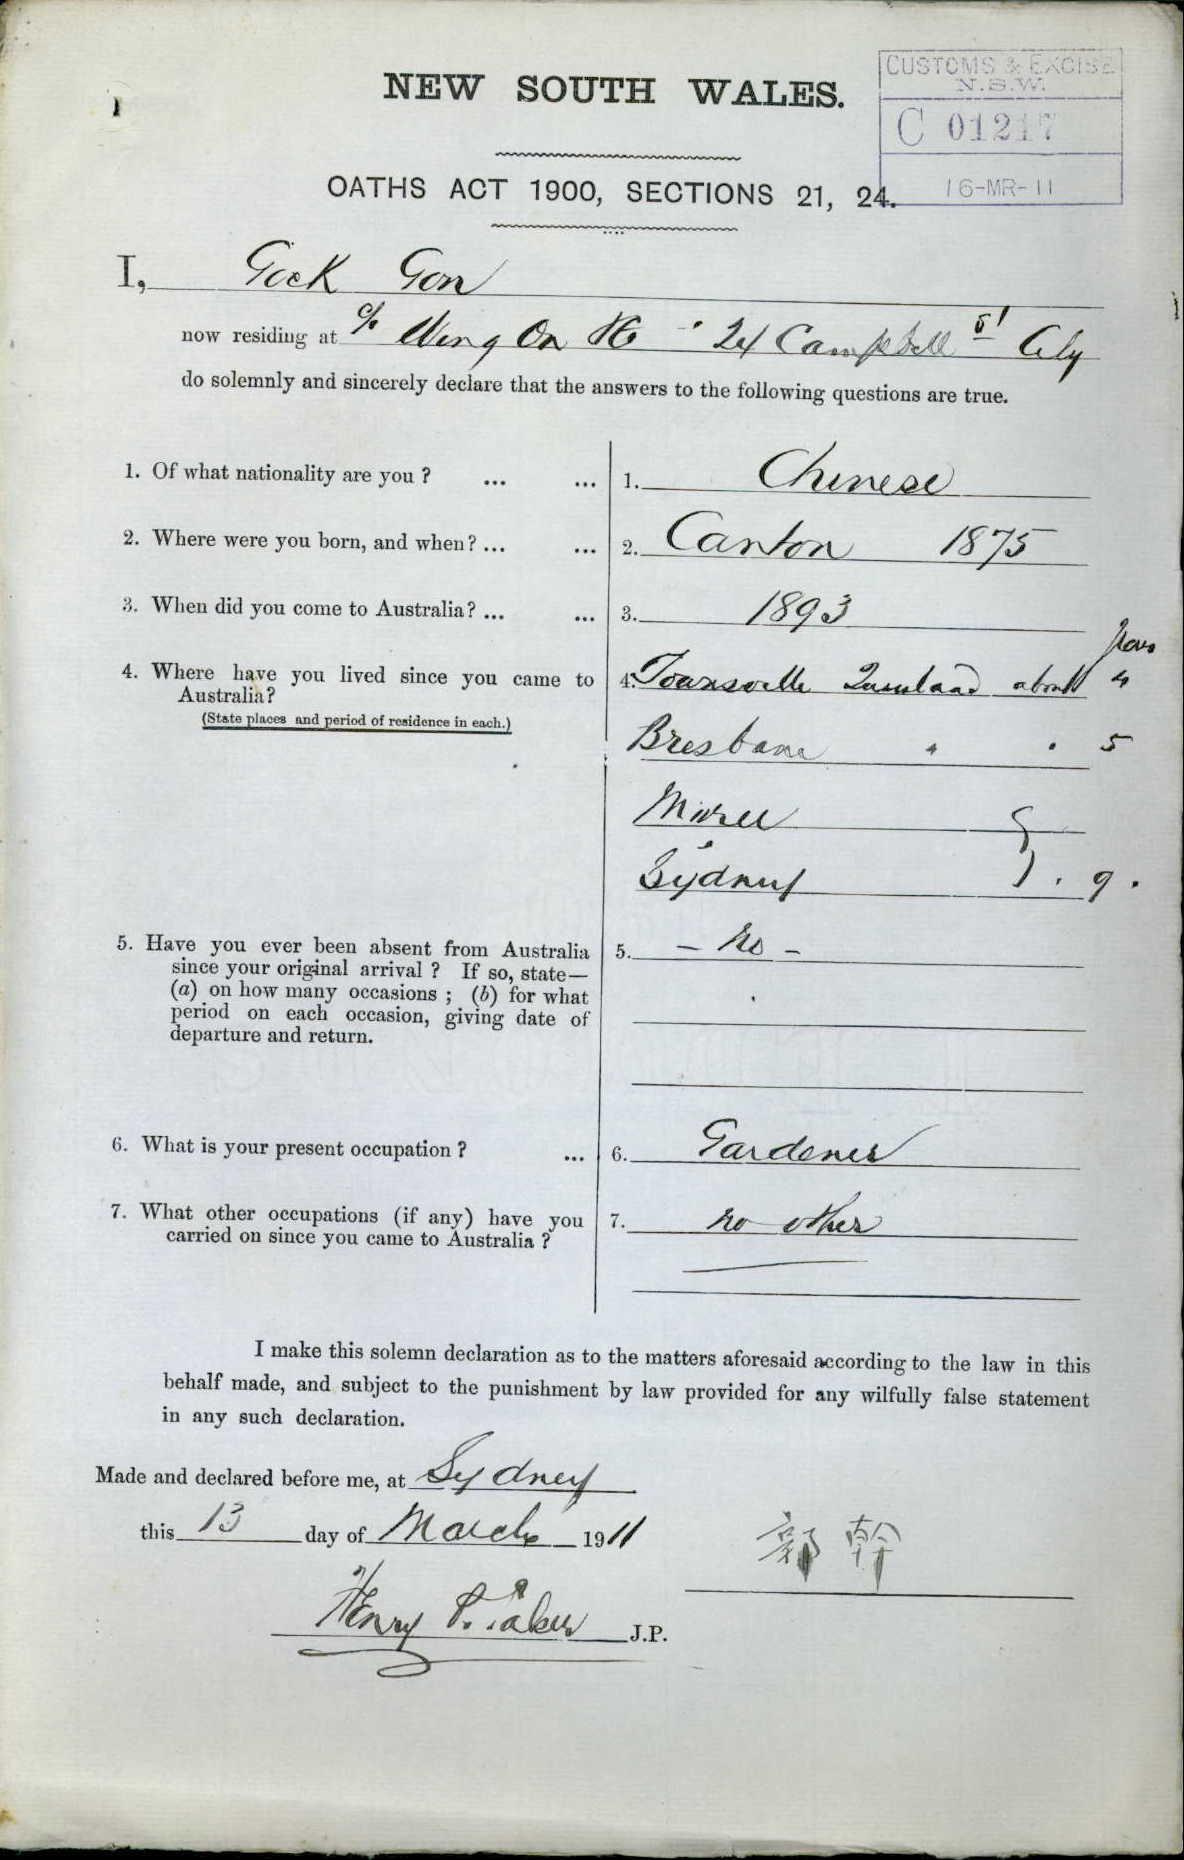 NEW SOUTH WALES.
CUSTOMS & EXCISE
N.S.W.
C 01217
16-MR-11
OATHS ACT 1900, SECTIONS 21, 24.
I, Gock Gon
now residing at c/o Wing On 24 Campbell St City
do solemnly and sincerely declare that the answers to the following questions are true.
1. Of what nationality are you ? ... ... 1. Chinese
2. Where were you born, and when? ... ... 2. Canton 1875
3. When did you come to Australia? ... ... 3. 1893
years
4. Where have you lived since you came to 4. about 4
Australia?
(State places and period of residence in each.)
Bresbane " " 5
Sydney } . 9 .
5. Have you ever been absent from Australia 5. – no –
since your original arrival ? If so, state—
(a) on how many occasions ; (b) for what
period on each occasion, giving date of
departure and return.
6. What is your present occupation ? ... 6. Gardener
7. What other occupations (if any) have you 7. no other
carried on since you came to Australia ?
I make this solemn declaration as to the matters aforesaid according to the law in this
behalf made, and subject to the punishment by law provided for any wilfully false statement
in any such declaration.
Made and declared before me, at Sydney
this 13 day of March 1911
郭 幹
Henry J.P.